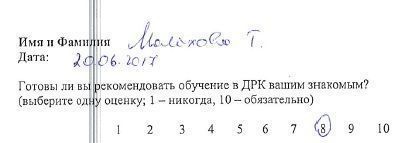 Имя и Фамилия Малахова Т.
Дата: 20.06.2017
Готовы ли вы рекомендовать обучение в ДРК вашим знакомым?
(выберите одну оценку; 1 – никогда, 10 – обязательно)
1 2 3 4 5 6 7 8 9 10